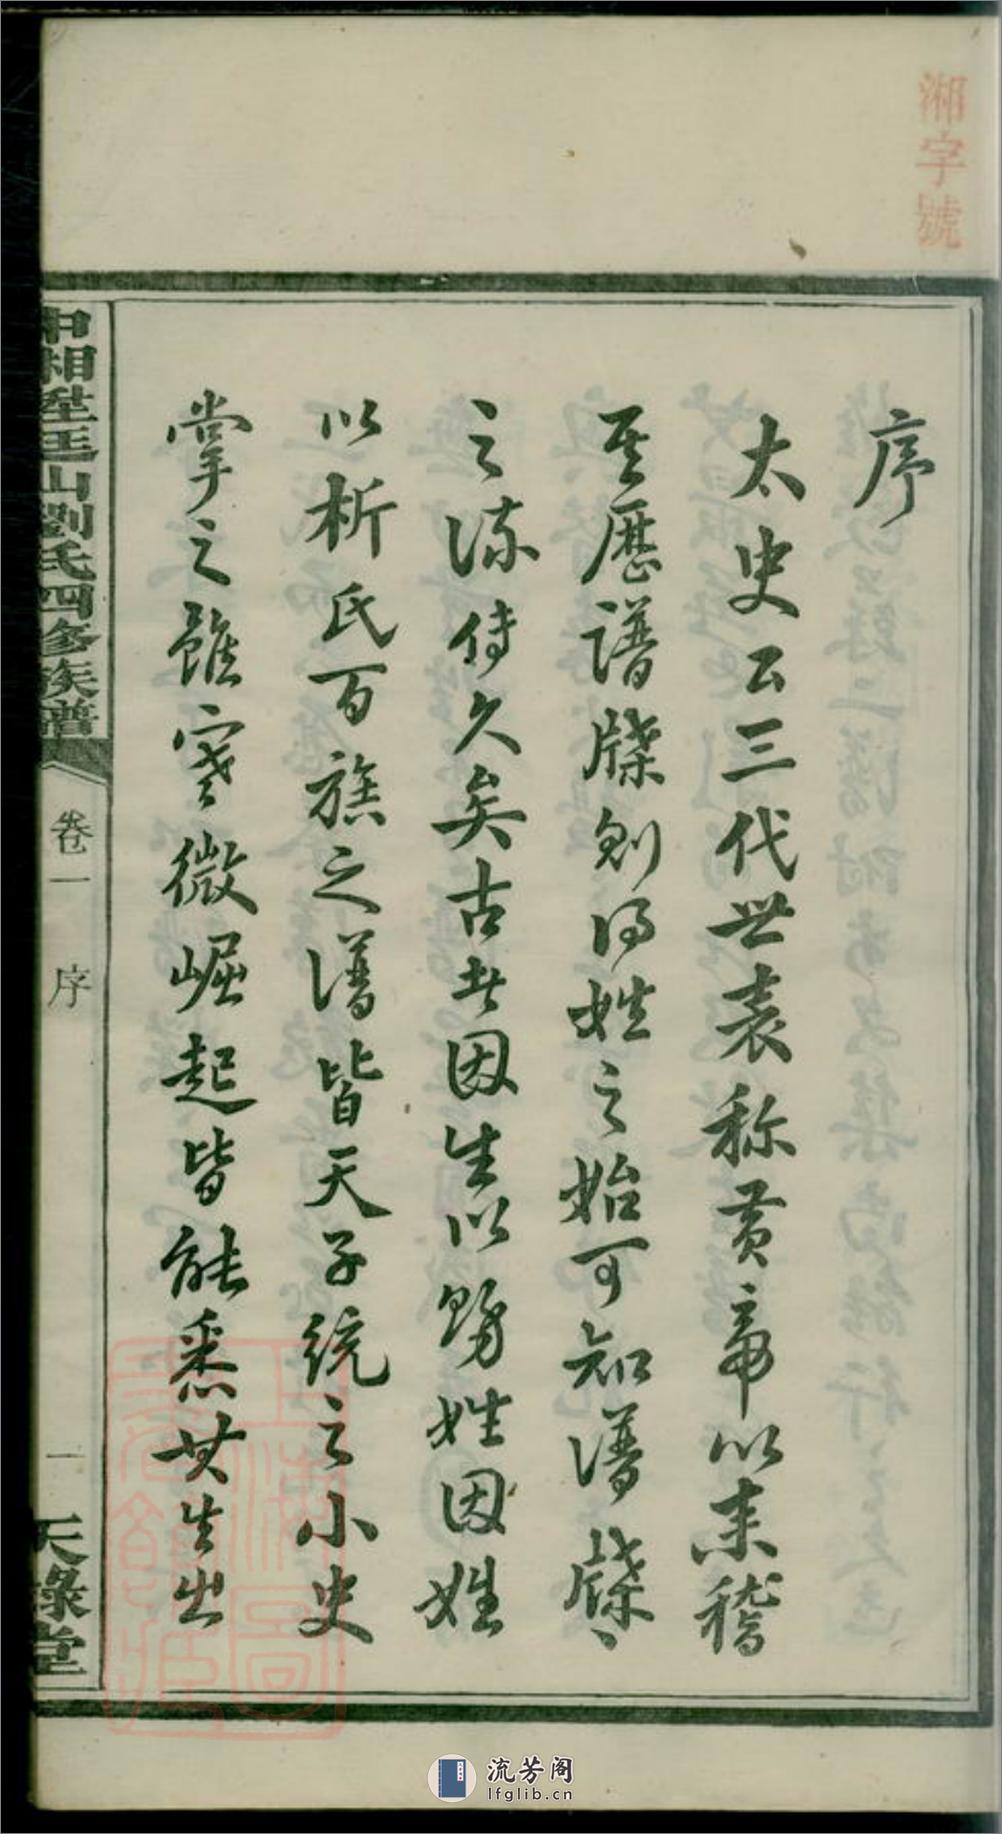 湘字號
序
太史公三代世表称黄帝以来稽
其歷譜牒則得姓之始可知譜牒
之流传久矣古者因生以賜姓因姓
以析氏百族之譜皆天子統之小史
掌之雖寒微崛起皆能悉其生出
中湘
山劉氏四修族譜
卷一 序
一
天祿堂
上海圖書館藏
流芳阁
lfglib.cn